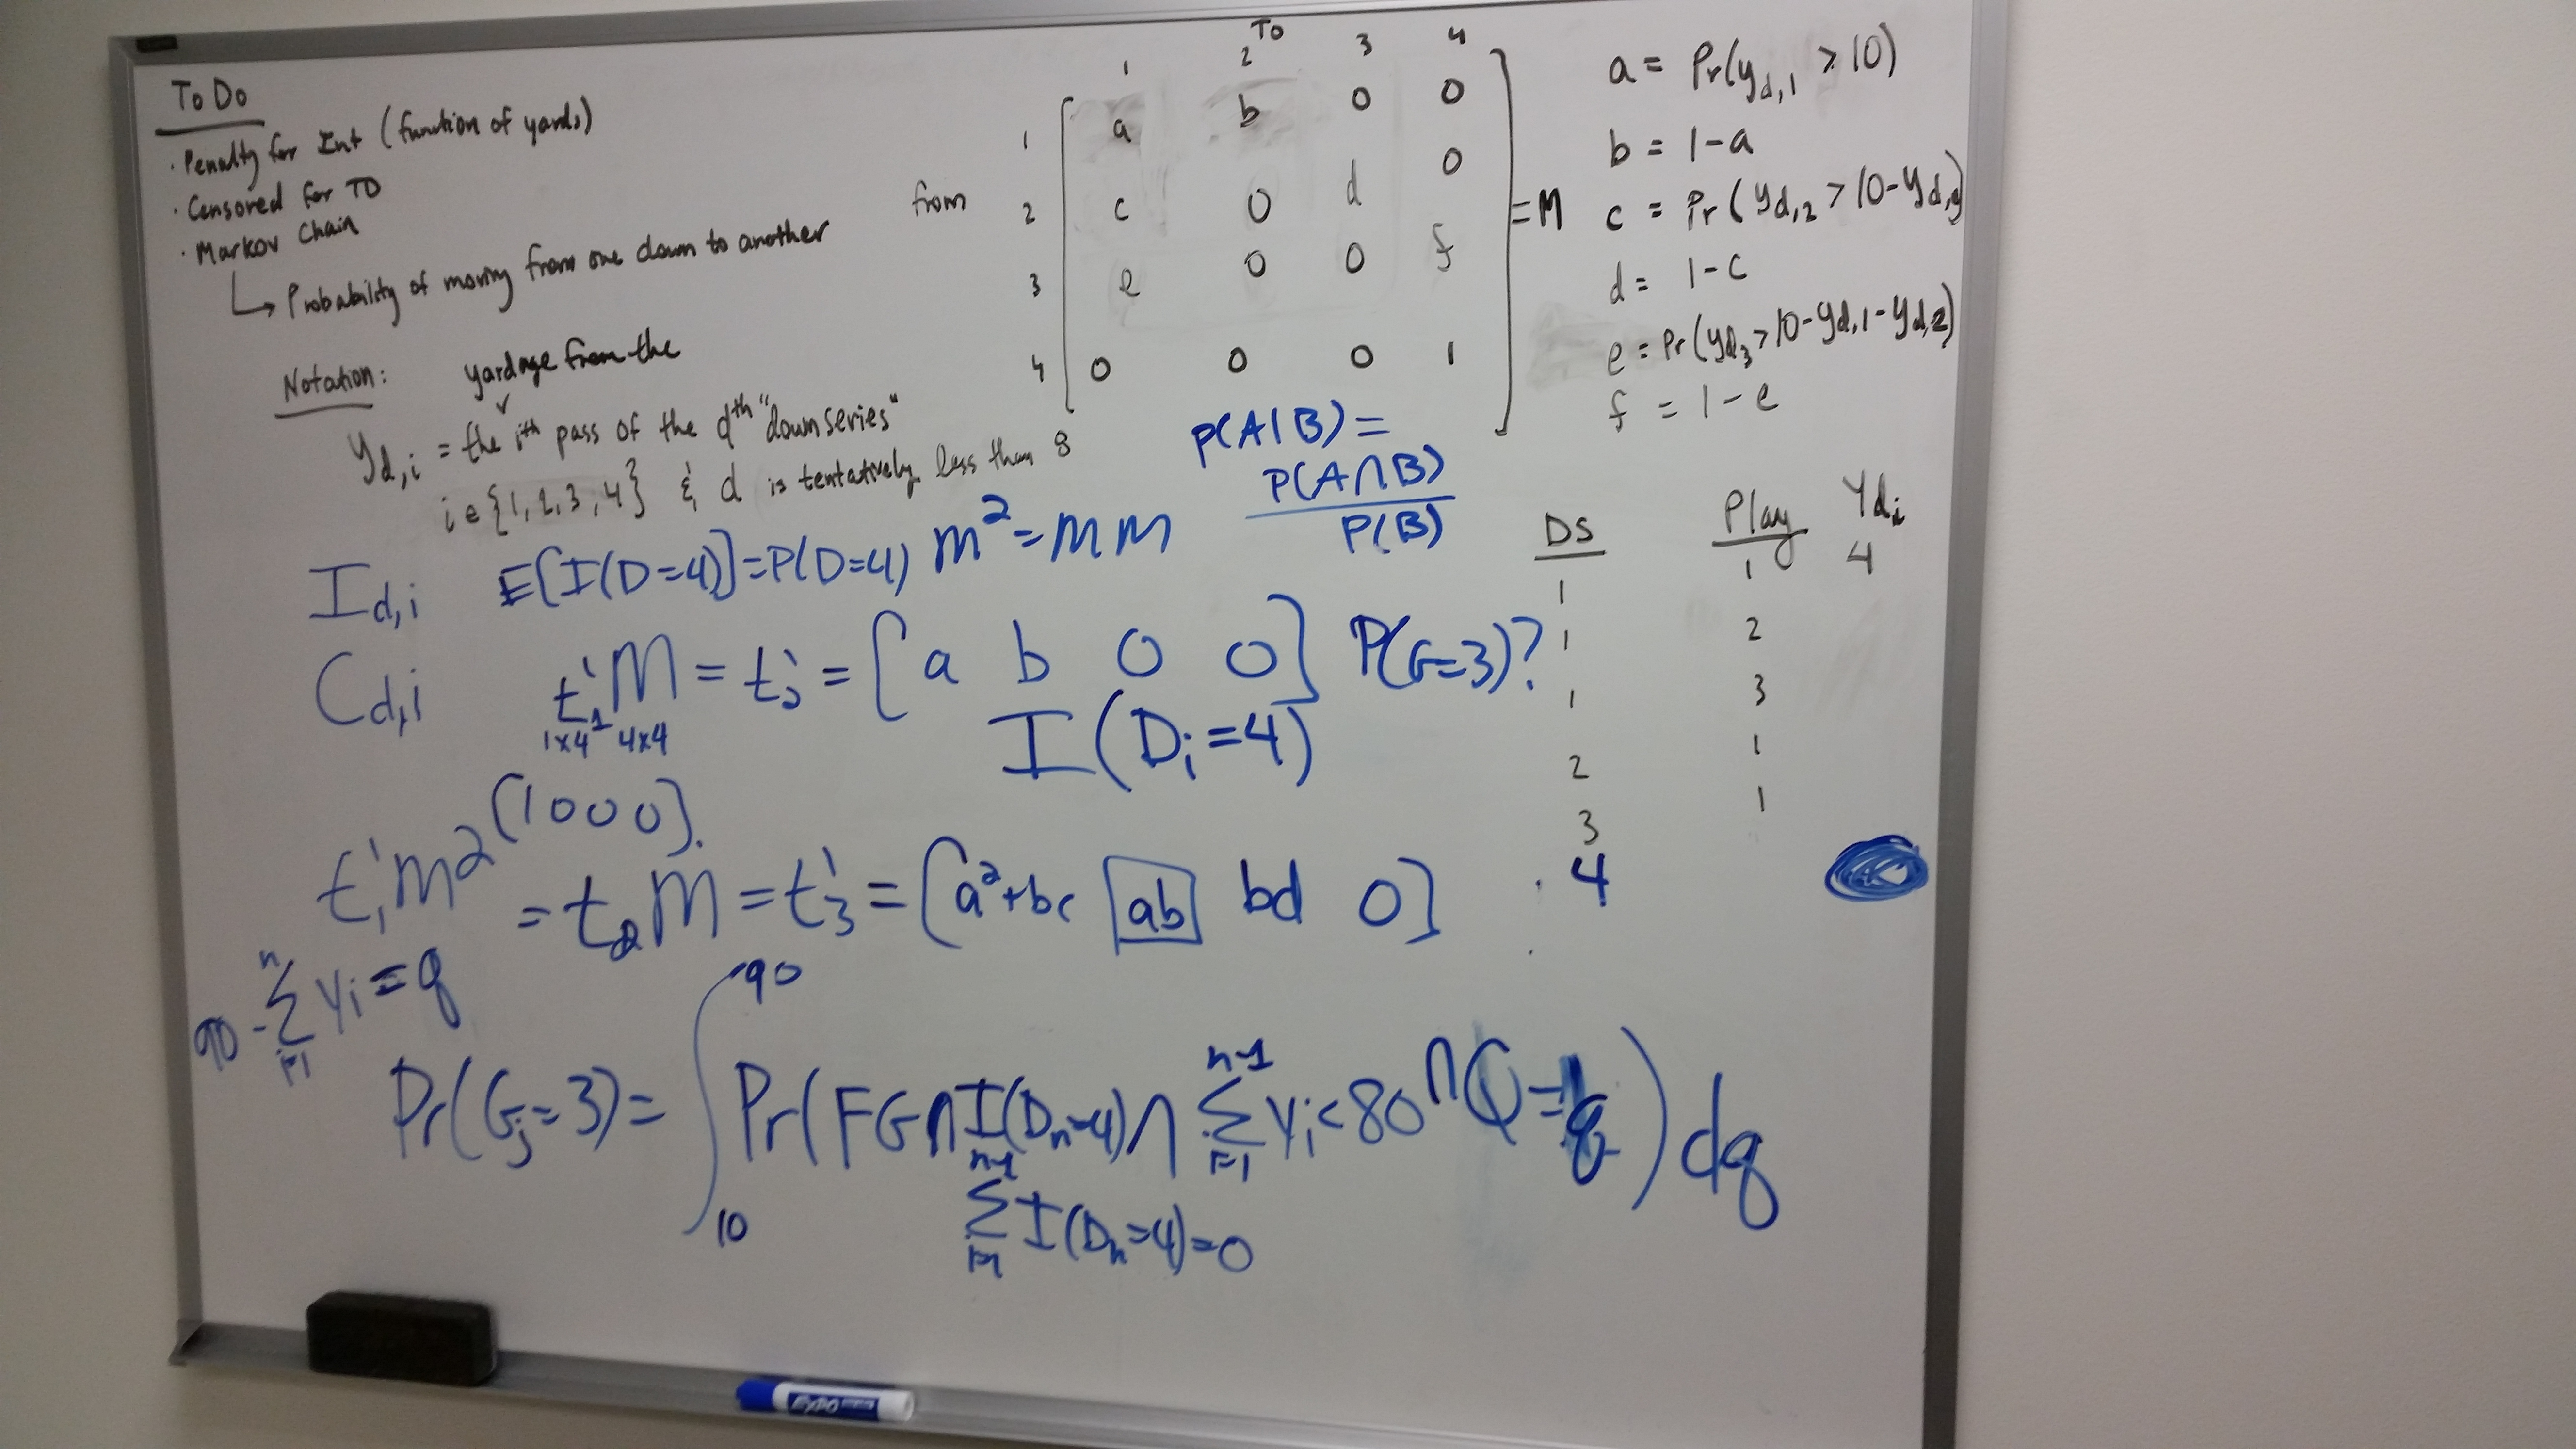 To Do
· Penalty for Int (function of yards)
· Censored for TD
· Markov Chain
↳ Probability of moving from one down to another
Notation: yardage from the
y_{d,i} = the ith pass of the dth "down series"
i ∈ {1, 2, 3, 4} & d is tentatively less than 8
To
1 2 3 4
from
1 a b 0 0
2 c 0 d 0
3 e 0 0 f
4 0 0 0 1
= M
a = Pr(y_{d,1} > 10)
b = 1-a
c = Pr(y_{d,2} > 10-y_{d,1})
d = 1-c
e = Pr(y_{d,3} > 10-y_{d,1}-y_{d,2})
f = 1-e
P(A|B) =
P(A∩B)
P(B)
DS Play Y_{d,i}
1 1 4
1 2
1 3
2 1
3 1
4
I_{d,i} E[I(D=4)]=P(D=4) M²=MM
C_{d,i} t'_1 M = t'_2 = [a b 0 0] P(G=3)?
1x4 4x4
I(D_i=4)
[1 0 0 0].
t'_1 M² = t_2 M = t'_3 = [a²+bc ab bd 0]
90 - Σ_{i=1}^{n} y_i = q
Pr(G_j=3) = ∫_{10}^{90} Pr(FG ∩ I(D_n=4) ∩ Σ_{i=1}^{n-1} y_i < 80 ∩ Q=q) dq
Σ_{i=1}^{n-1} I(D_n=4)=0
EXPO